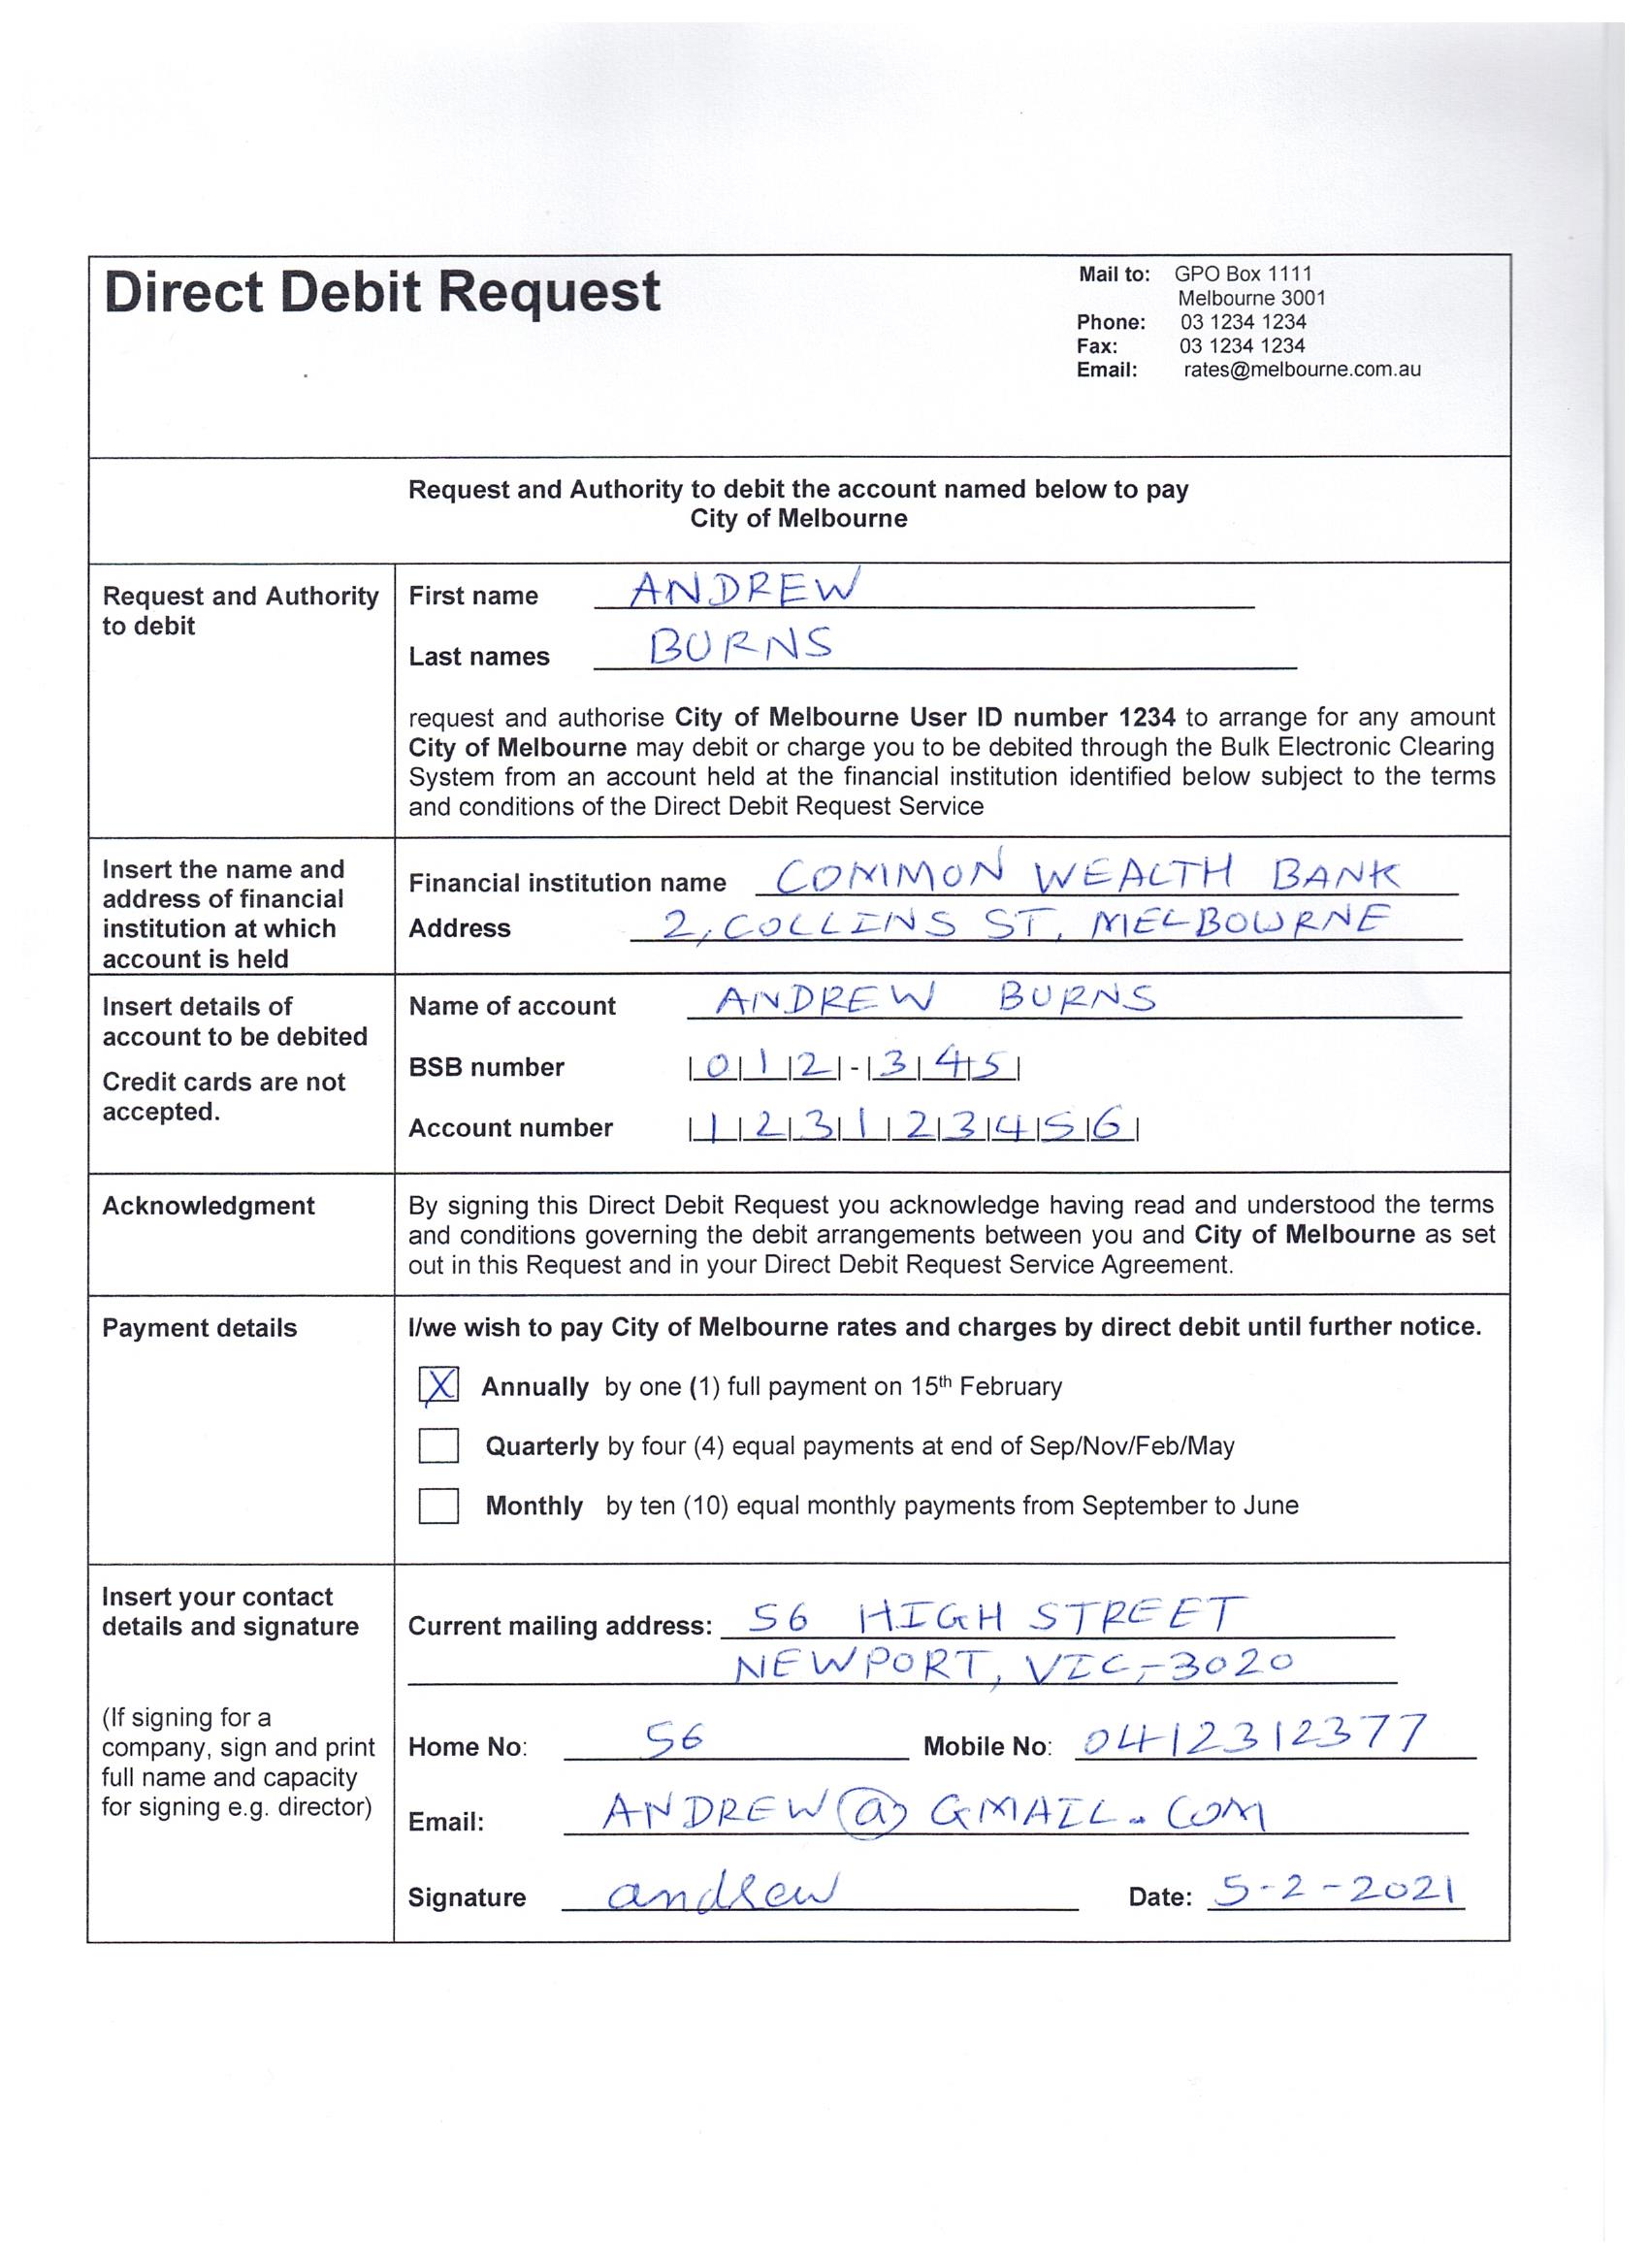 Direct Debit Request
Mail to: GPO Box 1111
Melbourne 3001
Phone: 03 1234 1234
Fax: 03 1234 1234
Email: rates@melbourne.com.au
Request and Authority to debit the account named below to pay
City of Melbourne
Request and Authority
to debit
First name ANDREW
Last names BURNS
request and authorise City of Melbourne User ID number 1234 to arrange for any amount
City of Melbourne may debit or charge you to be debited through the Bulk Electronic Clearing
System from an account held at the financial institution identified below subject to the terms
and conditions of the Direct Debit Request Service
Insert the name and
address of financial
institution at which
account is held
Financial institution name COMMON WEALTH BANK
Address 2, COLLINS ST, MELBOURNE
Insert details of
account to be debited
Credit cards are not
accepted.
Name of account ANDREW BURNS
BSB number |0|1|2|-|3|4|5|
Account number |1|2|3|1|2|3|4|5|6|
Acknowledgment
By signing this Direct Debit Request you acknowledge having read and understood the terms
and conditions governing the debit arrangements between you and City of Melbourne as set
out in this Request and in your Direct Debit Request Service Agreement.
Payment details
I/we wish to pay City of Melbourne rates and charges by direct debit until further notice.
X Annually by one (1) full payment on 15th February
Quarterly by four (4) equal payments at end of Sep/Nov/Feb/May
Monthly by ten (10) equal monthly payments from September to June
Insert your contact
details and signature
(If signing for a
company, sign and print
full name and capacity
for signing e.g. director)
Current mailing address: 56 HIGH STREET
NEWPORT, VIC,-3020
Home No: 56 Mobile No: 0412312377
Email: ANDREW@GMAIL.COM
Signature andrew Date: 5-2-2021